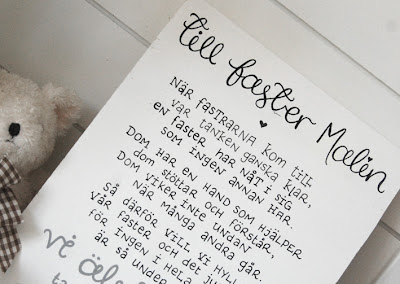 till faster Malin
NÄR FASTRARNA KOM TILL
VAR TANKEN GANSKA KLAR,
EN FASTER HAR NÅT I SIG
SOM INGEN ANNAN HAR.
DOM HAR EN HAND SOM HJÄLPER
DOM STÖTTAR OCH FÖRSTÅR,
DOM VIKER INTE UNDAN
NÄR MÅNGA ANDRA GÅR.
SÅ DÄRFÖR VILL VI HYLL
VÅR FASTER OCH DET JU
FÖR INGEN I HELA
ÄR SÅ UNDER
Vi äls